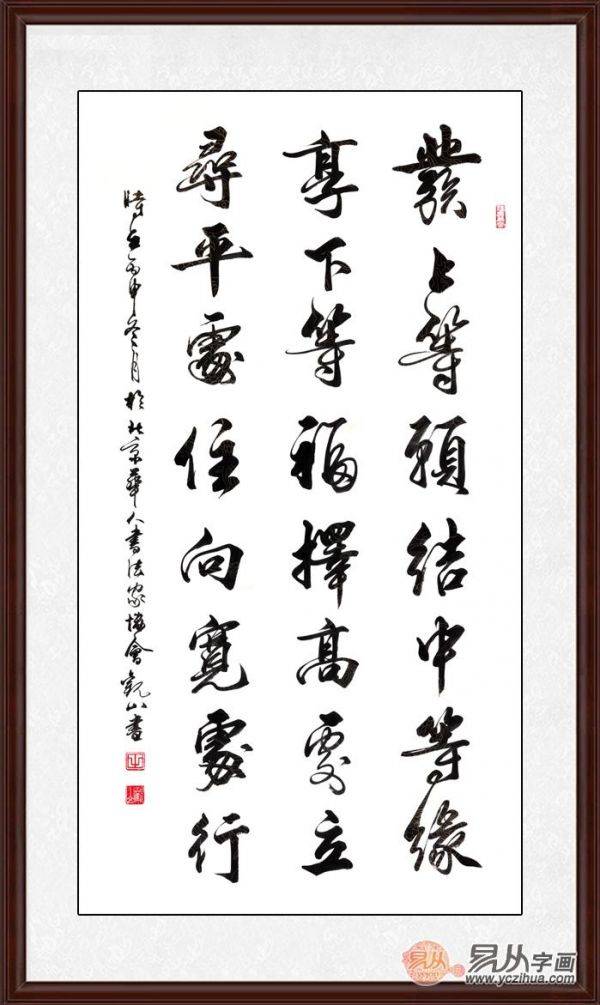 發上等願結中等緣
享下等福擇高處立
尋平處住向寬處行
時在丙申冬月於北京華人書法家協會觀山書
易从字画
www.yczihua.com